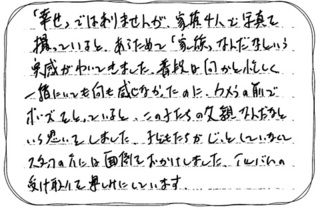 「幸せ」ではありませんが、家族4人で写真を
撮っていると、あらためて「家族」なんだなという
実感がわいてきました。普段は何かと忙しく
一緒にいても何も感じなかったのに、カメラの前で
ポーズをとっていると、この子たちの父親なんだなと
いう思いでしました。子どもたちがじっとしていなくて
スタッフの方には面倒をおかけしました。アルバムの
受け取りを楽しみにしています。